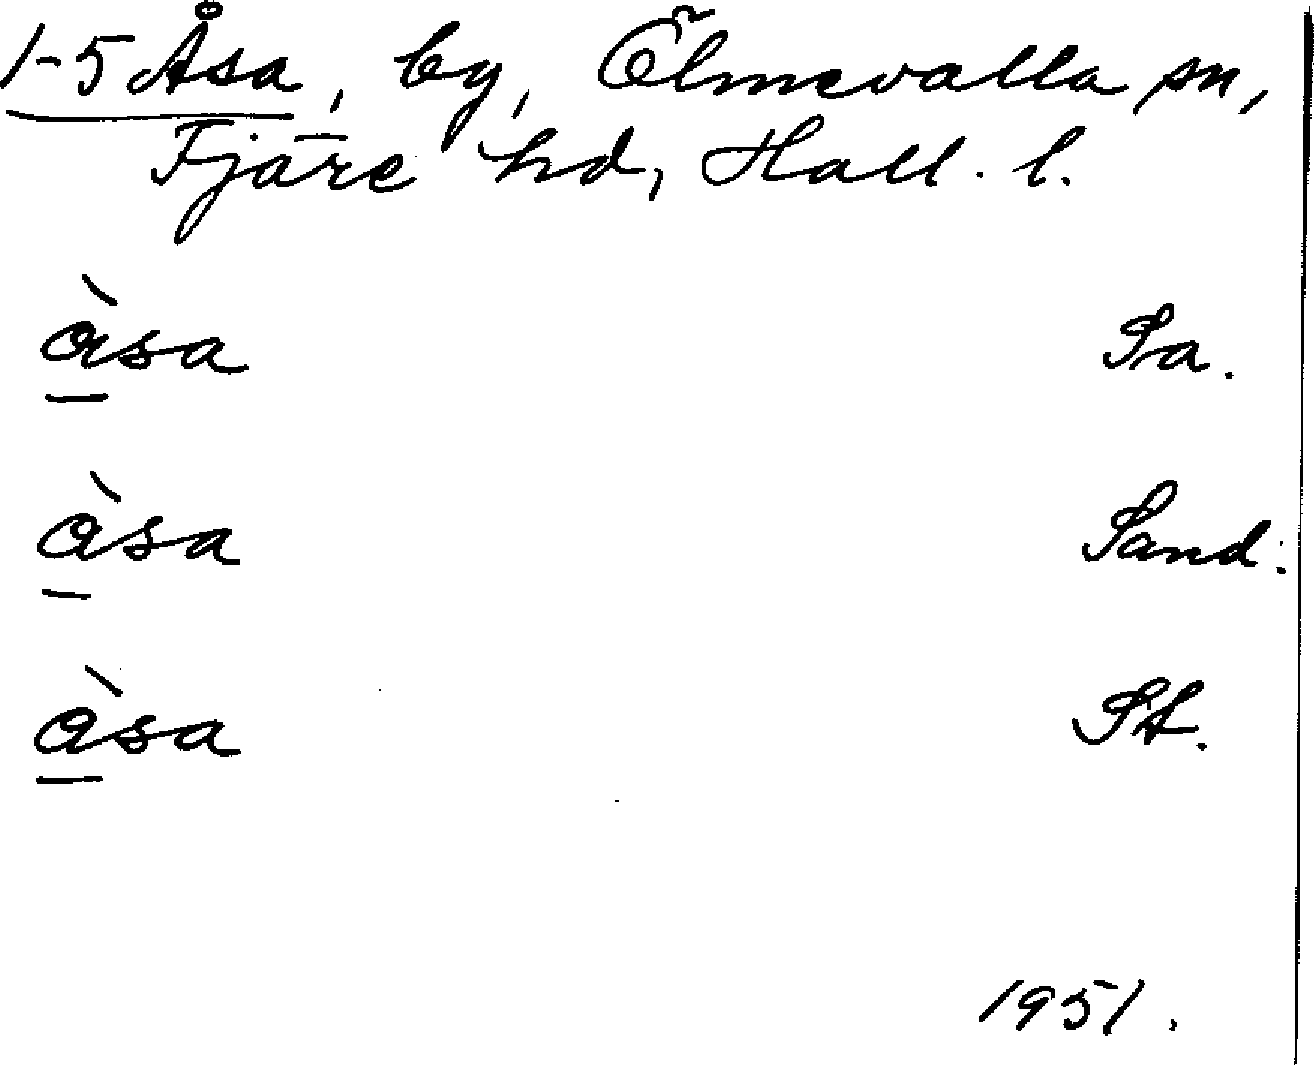 1-5 Åsa, by, Ölmevalla sn,
Fjäre hd, Hall. l.
àsa Pa.
àsa Sand.
àsa St.
1951.